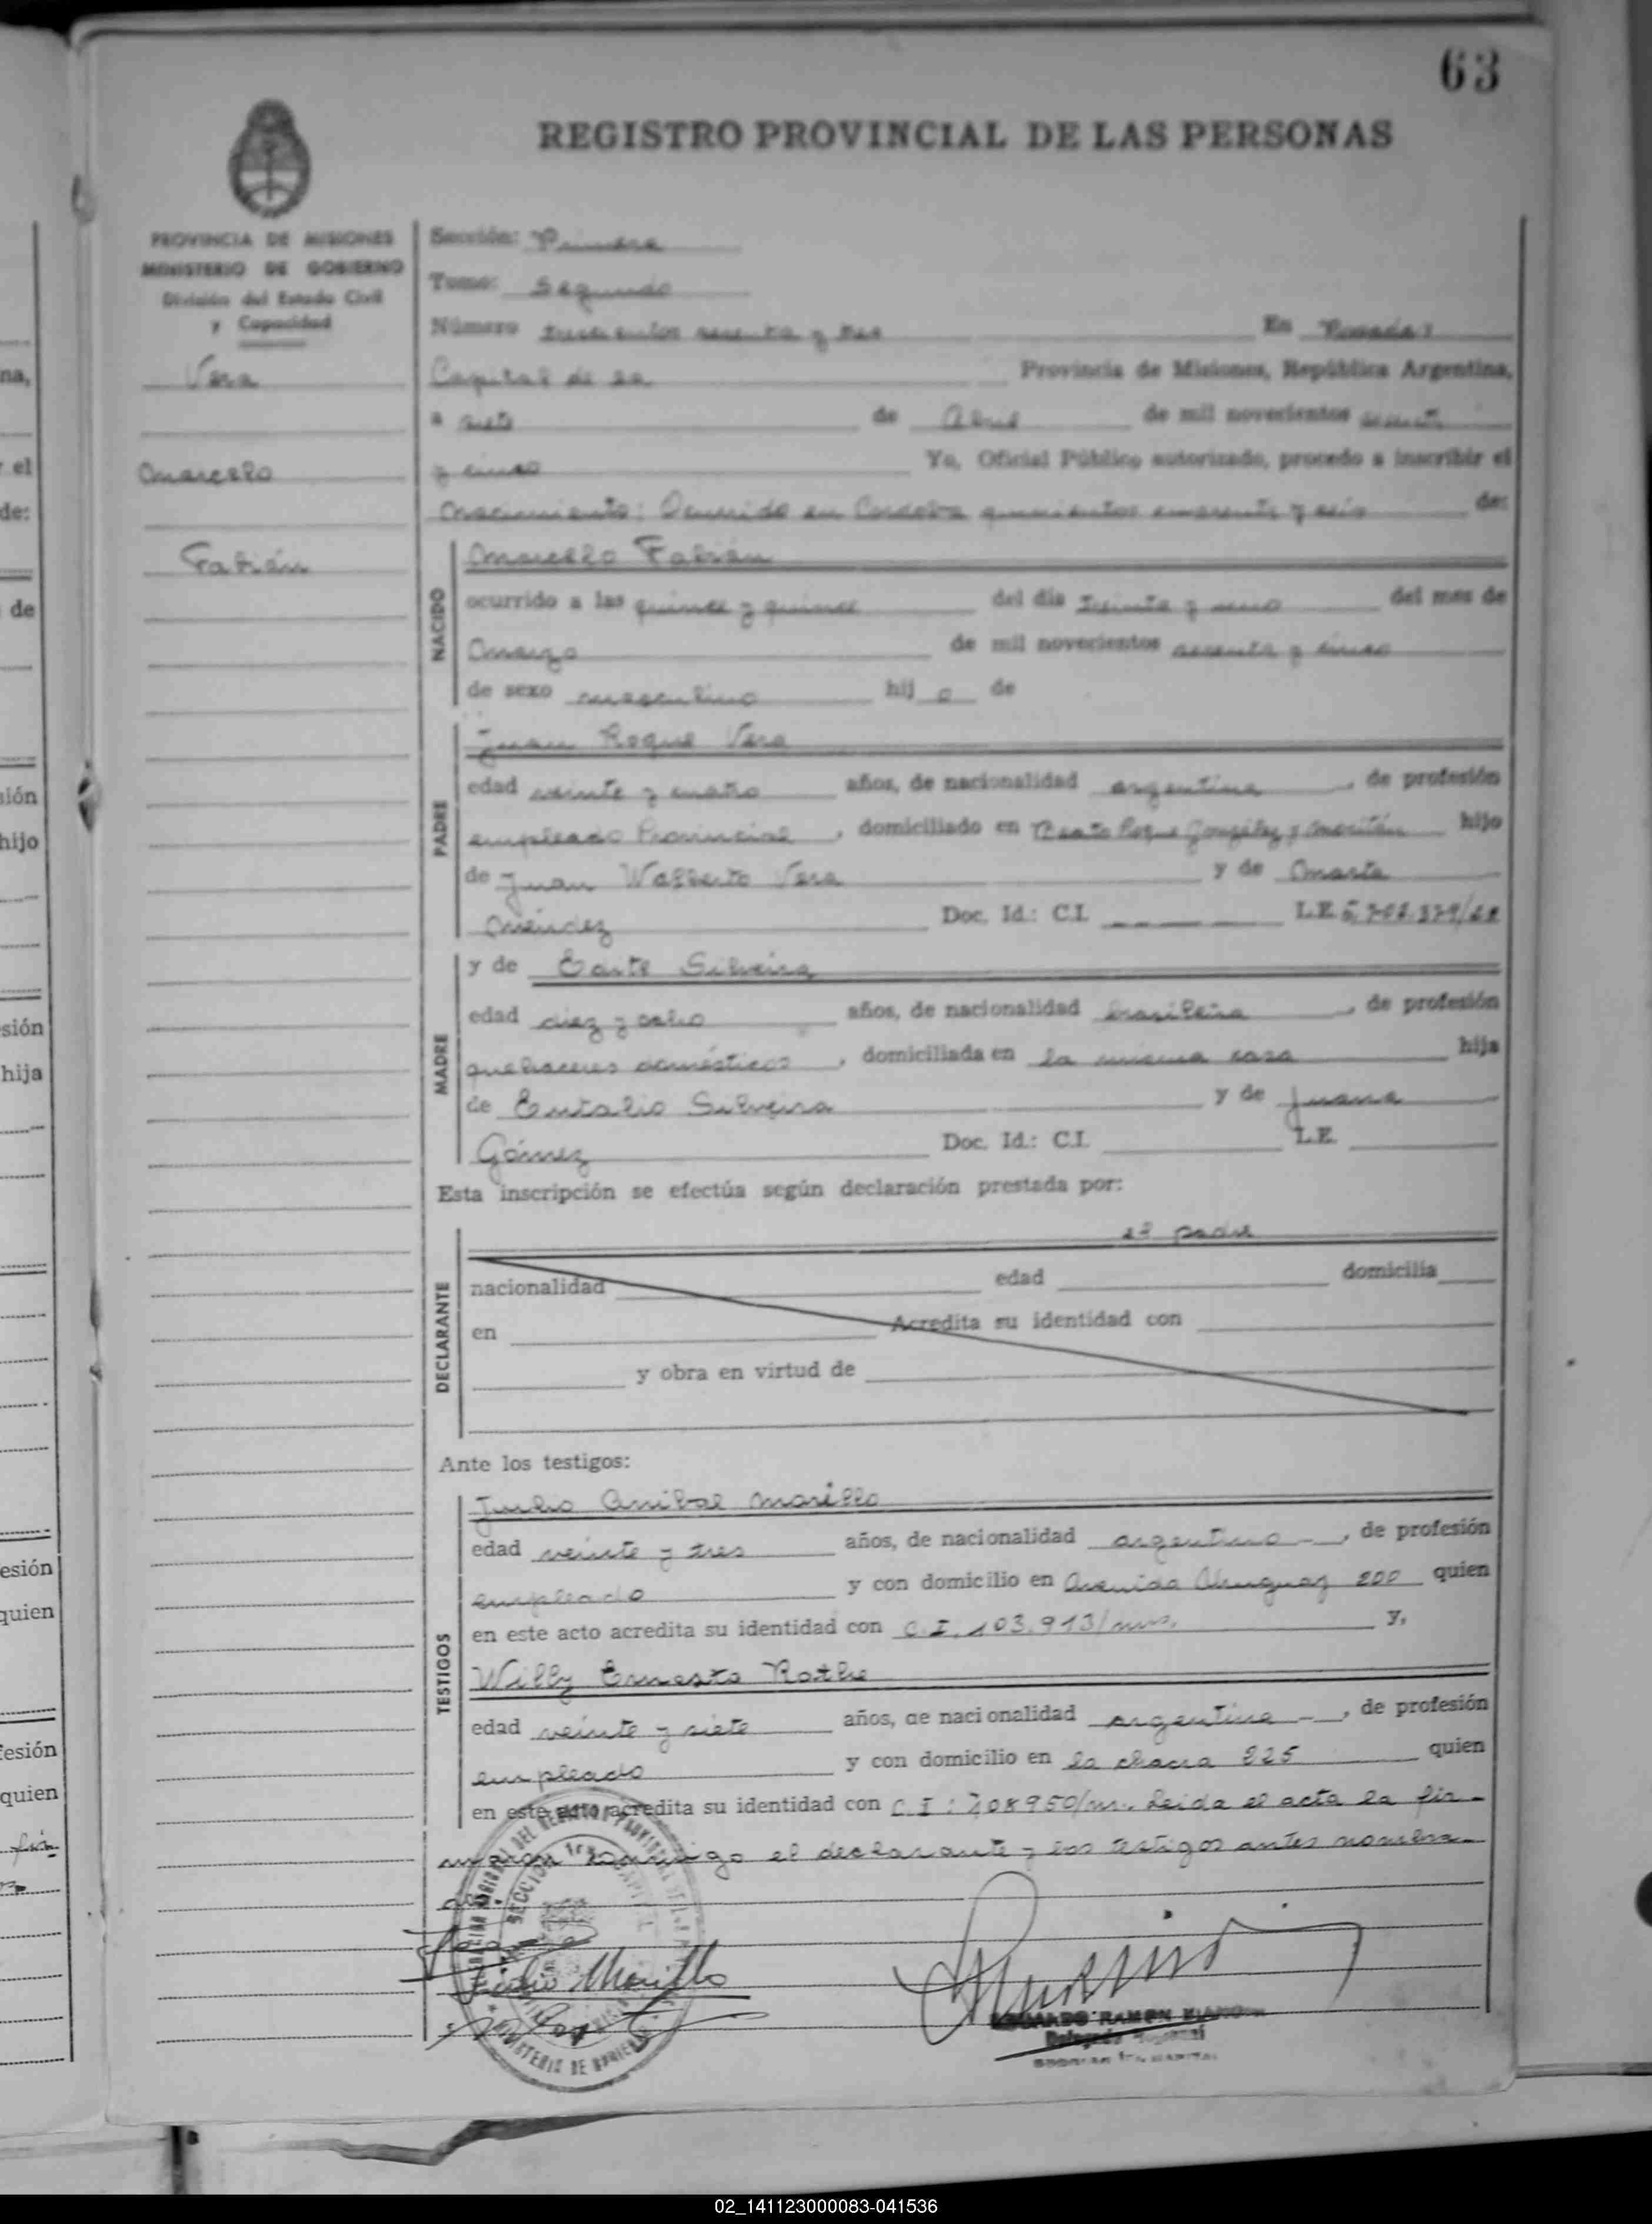 63
REGISTRO PROVINCIAL DE LAS PERSONAS
PROVINCIA DE MISIONES
MINISTERIO DE GOBIERNO
División del Estado Civil
y Capacidad
Vera
Marcello
Fabián
Sección: Primera
Tomo: Segundo
Número trescientos sesenta y tres En Posadas
Capital de la Provincia de Misiones, República Argentina,
a siete de Abril de mil novecientos sesenta
y cinco Yo, Oficial Público autorizado, procedo a inscribir el
Nacimiento: Ocurrido en Cordoba quinientos cuarenta y seis de:
NACIDO
Marcello Fabián
ocurrido a las quince y quince del día treinta y uno del mes de
Marzo de mil novecientos sesenta y cinco
de sexo masculino hij o de
PADRE
Juan Roque Vera
edad veinte y cuatro años, de nacionalidad argentina, de profesión
empleado Provincial, domiciliado en Beato Roque González y hijo
de Juan Walberto Vera y de Marta
Méndez Doc. Id.: C.I. L.E.
MADRE
y de Edite Silveira
edad diez y ocho años, de nacionalidad brasileña, de profesión
quehaceres domésticos, domiciliada en la misma casa hija
de Silveira y de Juana
Gómez Doc. Id.: C.I. L.E.
Esta inscripción se efectúa según declaración prestada por:
DECLARANTE
el padre
nacionalidad edad domicilia
en Acredita su identidad con
y obra en virtud de
Ante los testigos:
TESTIGOS
Julio Anibal Morillo
edad veinte y tres años, de nacionalidad argentino -, de profesión
empleado y con domicilio en Avenida Uruguay 200 quien
en este acto acredita su identidad con C.I. 103.913/mns. y,
Willy Ernesto Rothe
edad veinte y siete años, de nacionalidad argentina -, de profesión
empleado y con domicilio en la chacra 225 quien
en este acto acredita su identidad con C.I: 108950/m. Leida el acta la fir-
maron conmigo el declarante y los testigos antes nombra-
dos.
Julio Morillo
02_141123000083-041536